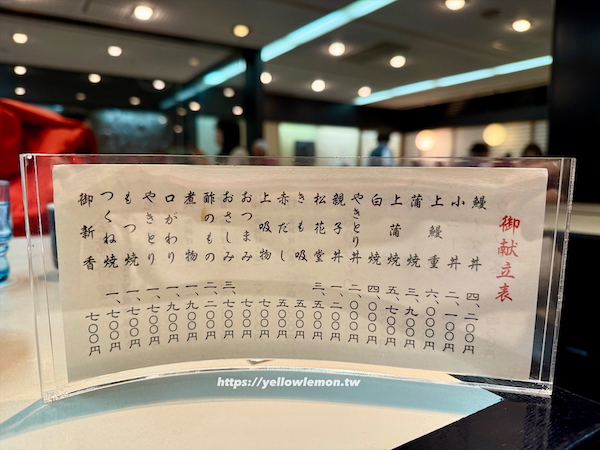 御献立表
鰻丼 四、二〇〇円
小丼 二、一〇〇円
上鰻重 六、〇〇〇円
蒲焼 三、九〇〇円
上蒲焼 五、七〇〇円
白焼 四、〇〇〇円
やきとり丼 二、〇〇〇円
親子丼
松花堂 三、五〇〇円
きも吸 五〇〇円
赤だし 五〇〇円
上吸物 七〇〇円
おつまみ 七〇〇円
おさしみ 三、七〇〇円
酢のもの 二、二〇〇円
煮物 一、九〇〇円
口がわり 一、九〇〇円
やきとり 一、七〇〇円
もつ焼 一、七〇〇円
つくね焼 一、七〇〇円
御新香 七〇〇円
https://yellowlemon.tw